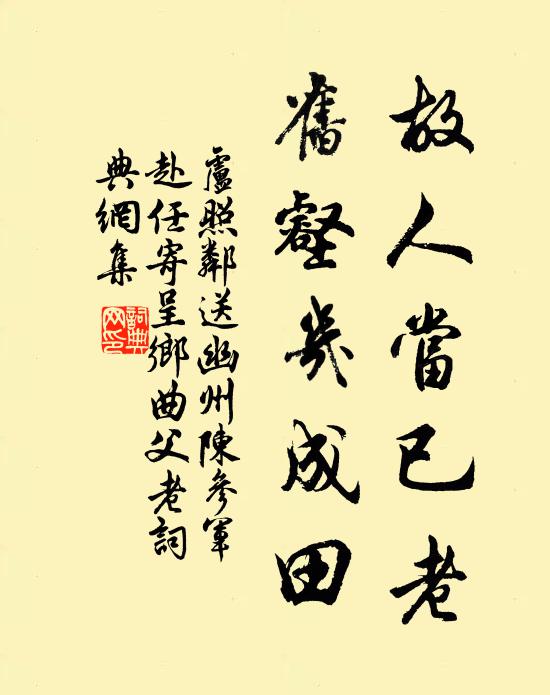 故人當已老
舊壑幾成田
盧照鄰送幽州陳參軍
赴任寄呈鄉曲父老詞
典網集
詞典
网印